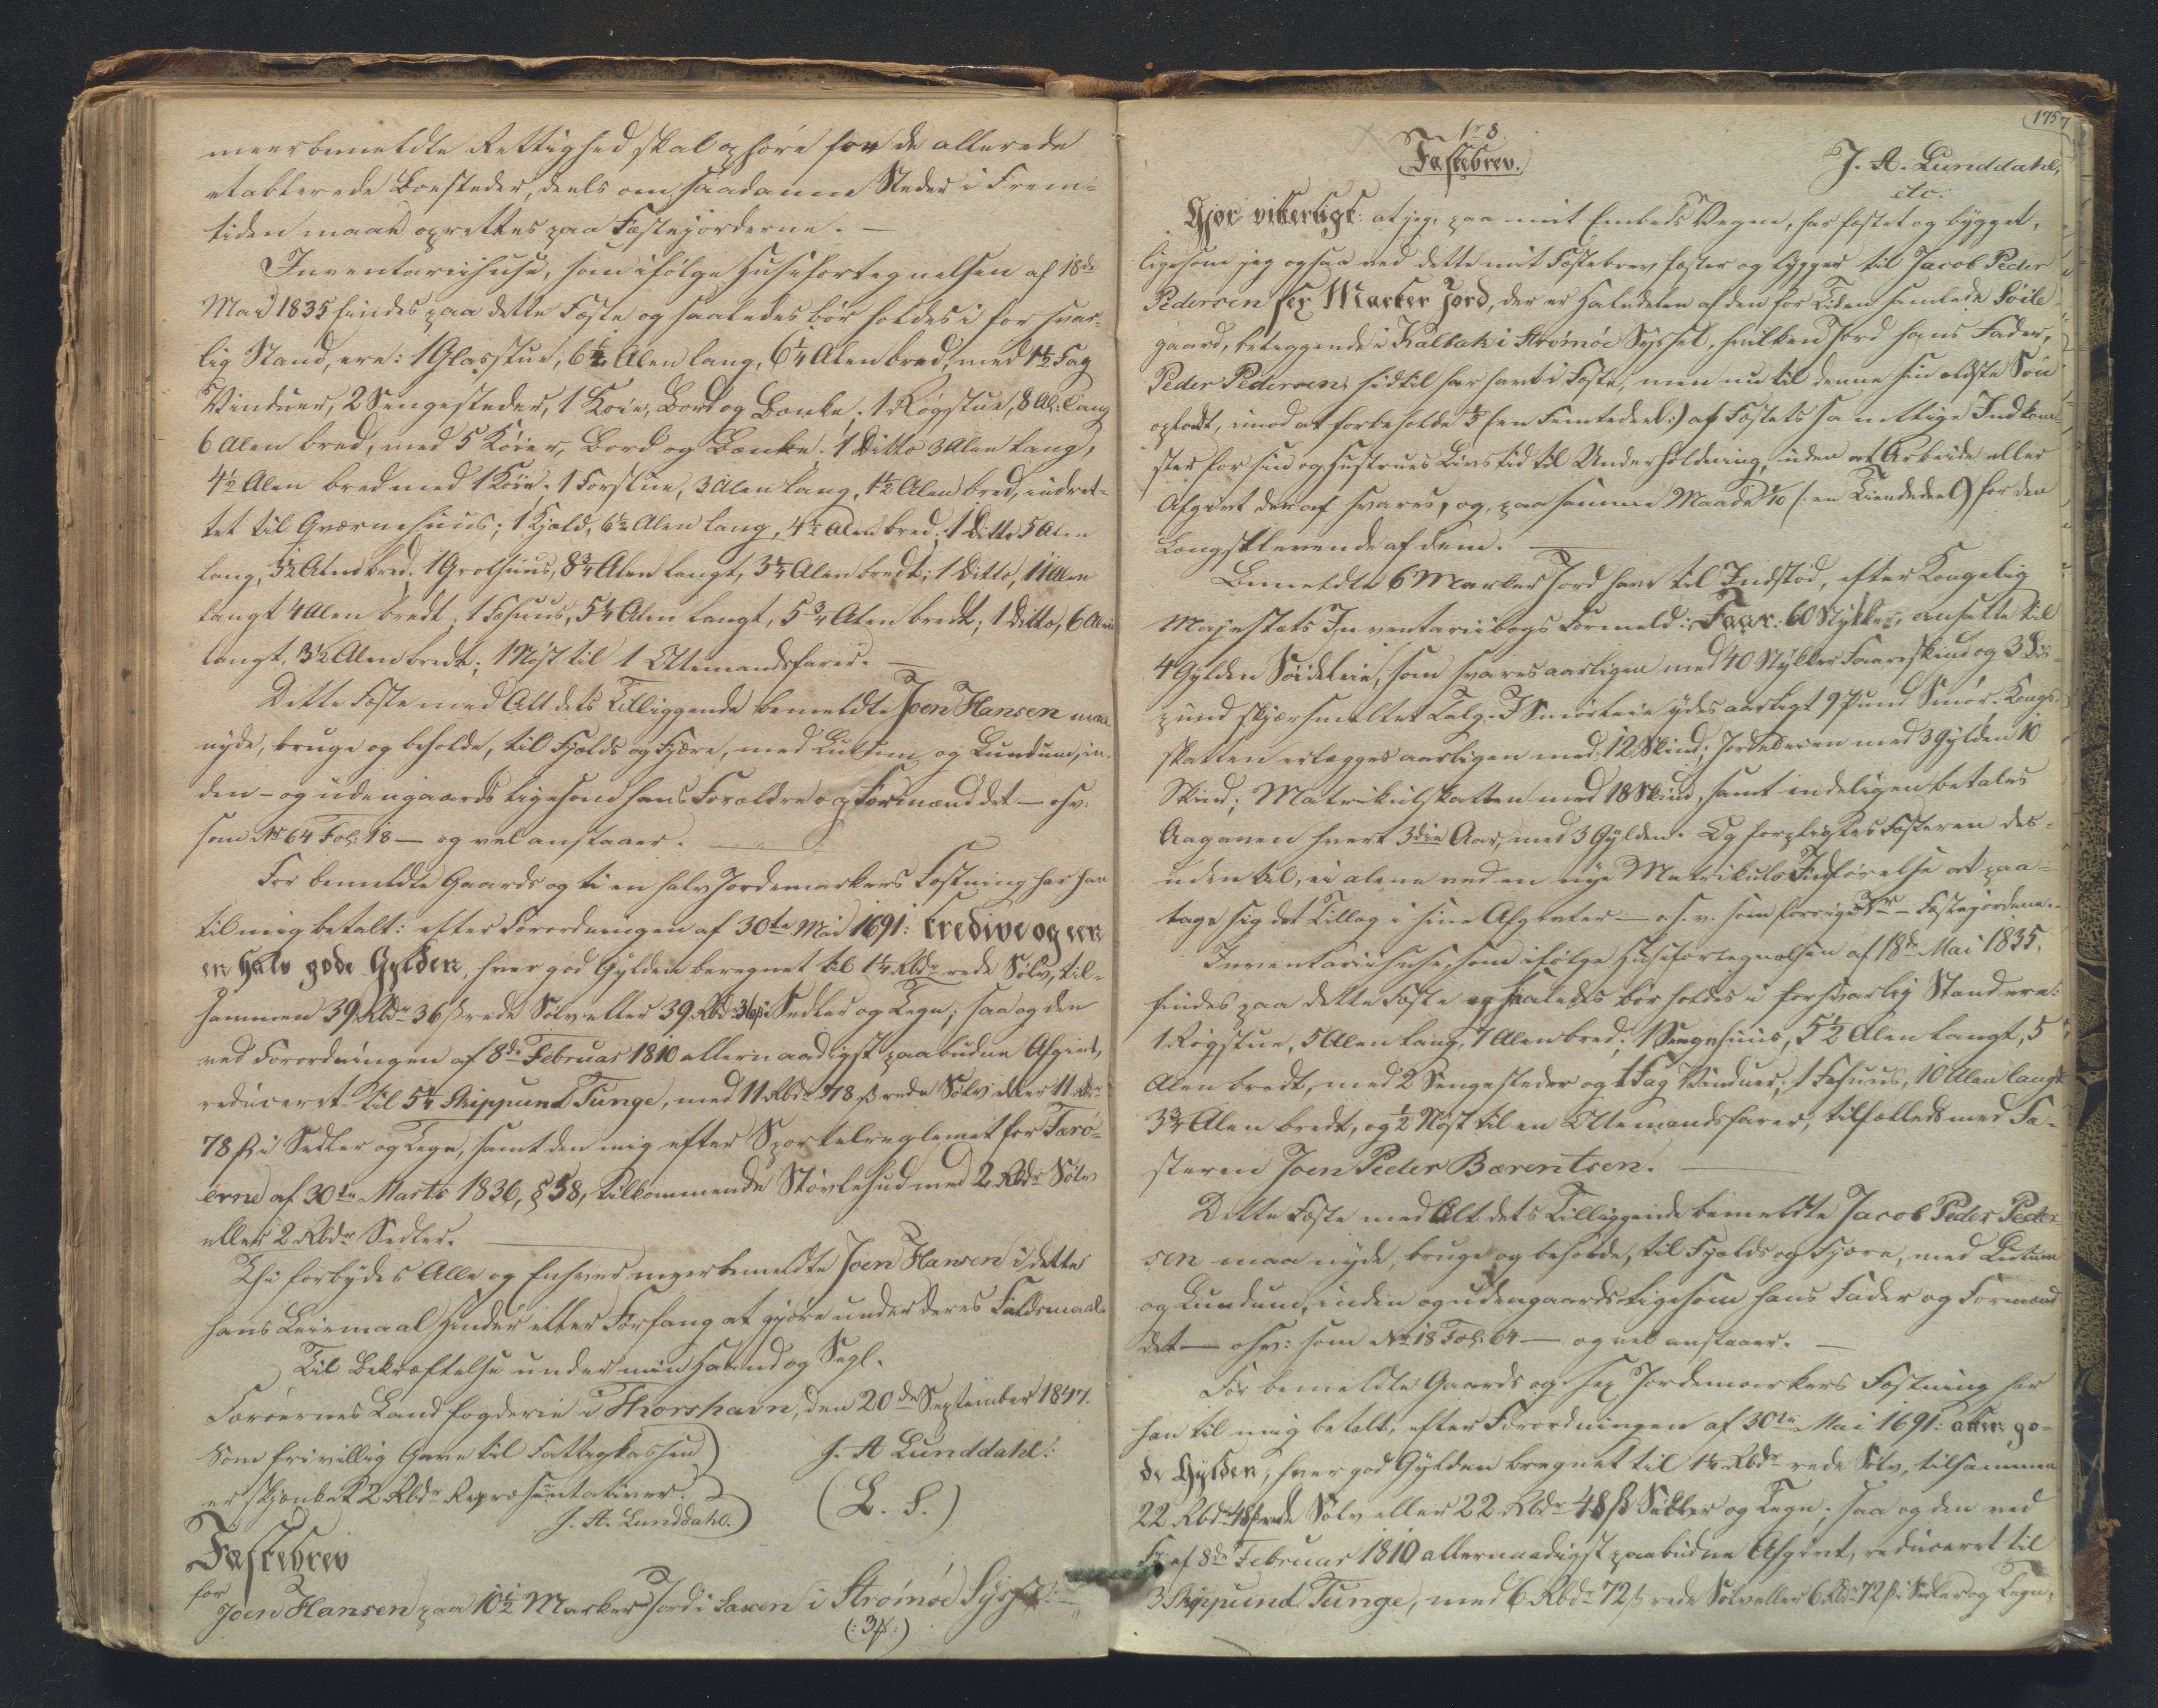 meerbemeldte Rettighed skal ophøre for de allerede
etablerede Boesteder, deels om saadanne Steder i Frem-
tiden maae oprettes paa Fæstejorderne. —
Inventariihuse, som ifølge Huusefortegnelsen af 18de
Mai 1835 findes paa dette Fæste og saaledes bør holdes i forsvar-
lig Stand, ere: 1 Glasstue, 6¼ Alen lang, 6¼ Alen bred, med 1½ Fag
Vinduer, 2 Sengesteder, 1 Køie, Bord og Bænke; 1 Røgstue, 8 Al: lang
6 Alen bred, med 5 Køier, Bord og Bænke; 1 Ditto 3 Alen lang,
4½ Alen bred med 1 Køie; 1 Forstue, 3 Alen lang, 1½ Alen bred, indret-
tet til Qværnehuus; 1 Hjald, 6½ Alen lang, 4½ Alen bred; 1 Ditto 5 Alen
lang, 3½ Alen bred; 1 Grothuus, 8¾ Alen langt, 3¾ Alen bredt; 1 Ditto, 11 Alen
langt 4 Alen bredt; 1 Fæhuus, 5¼ Alen langt, 5¾ Alen bredt; 1 Ditto, 6 Alen
langt, 3½ Alen bredt; 1 Nøst til 1 Ottemandsfarer. —
Dette Fæste med Alt dets Tilliggende bemeldte Joen Hansen maae
nyde, bruge og beholde, til Fjelds og Fjære, med Luttum og Lundum, in-
den- og udengaards ligesom hans Forældre og Formænd det — osv:
som No 64 Fol: 18 — og vel anstaaer. —
For bemeldte Gaards og ti en halv Jordemarkers Fæstning har han
til mig betalt: efter Forordningen af 30te Mai 1691: tredive og een
en halv gode Gylden, hver god Gylden beregnet til 1¼ Rbdr rede Sølv, til-
sammen 39 Rbdr 36 ß rede Sølv eller 39 Rbdr 36 ß i Sedler og Tegn; saa og den
ved Forordningen af 8de Februar 1810 allernaadigst paabudne Afgivt,
reduceret til 5¼ Skippund Tunge, med 11 Rbdr 78 ß rede Sølv eller 11 Rbdr
78 ß i Sedler og Tegn, samt den mig efter Sportelreglement for Færø-
erne af 30te Marts 1836, § 58, tilkommende Støvlehud med 2 Rbdr Sølv
eller 2 Rbdr Sedler. —
Thi forbydes Alle og Enhver meerbemeldte Joen Hansen i dette
hans Leiemaal Hinder eller Forfang at gjøre under deres Faldsmaal.
Til Bekræftelse under min Haand og Segl.
Færøernes Landfogderie i Thorshavn, den 20de September 1847.
Som frivillig Gave til Fattigkassen
er skjænket 2 Rbdr Repræsentativer.
J. A. Lunddahl.
J. A Lunddahl:
(L. S.)
Fæstebrev
for
Joen Hansen paa 10½ Marker Jord i Saxen i Strømøe Syssel:
(: 3 ß :)
175
Nr 8
Fæstebrev.
J. A. Lunddahl,
etc:
Gjør vitterligt: at jeg, paa mit Embeds Vegne, har fæstet og bygget,
ligesom jeg ogsaa ved dette mit Fæstebrev fæster og bygger til Jacob Peder
Pedersen sex Marker Jord, der er Halvdelen af den for Tiden samlede Søile-
gaard, beliggende i Kalbak i Strømøe Syssel, hvilken Jord hans Fader,
Peder Pedersen hidtil har havt i Fæste, men nu til denne sin ældste Søn
opladt, imod at forbeholde ⅕ (:en Femtedeel:) af Fæstets samtlige Indkom-
ster for sin og Hustrues Livstid til Underholdning, uden at Arbeide eller
Afgivt deraf svares, og, paa samme Maade 1/10 (:en Tiendedeel) for den
Længstlevende af dem. —
Bemeldte 6 Marker Jord have til Indstød, efter Kongelig
Majestæts Inventariibogs Formeld: Faar: 60 Stykker, ansatte til
4 Gylden Søidelein, som svares aarligen med 40 Stykker Faareskind og 3 Lis-
pund skjærsmeltet Talg. I Smørleie ydes aarligt 9 Pund Smør. Kongs-
skatten erlægges aarligen med 12 Skind; Jordeleien med 3 Gylden 10
Skind; Matrikulskatten med 18 Skind, samt endeligen betales
Aagonen hvert 3die Aar, med 3 Gylden. Og forpligtes Fæsteren des-
uden til, ei alene ved en nye Matrikuls Indførelse at paa-
tage sig det Tillæg i sine Afgivter — o.s.v. som forrige Nr — Fæstejorderne.
Inventariihuse, som ifølge Huusefortegnelsen af 18de Mai 1835,
findes paa dette Fæste og saaledes bør holdes i forsvarlig Stand ere:
1 Røgstue, 5 Alen lang, 7 Alen bred; 1 Sengehuus, 5½ Alen langt, 5
Alen bredt, med 2 Sengesteder og 1 Fag Vinduer; 1 Fæhuus, 10 Alen langt
3¾ Alen bredt, og ½ Nøst til en Ottemandsfarer, tilfælleds med Fæ-
steren Joen Peder Bærentsen. —
Dette Fæste med Alt dets Tilliggende bemeldte Jacob Peder Peder-
sen maa nyde, bruge og beholde, til Fjelds og Fjære, med Luttum
og Lundum, inden og udengaards ligesom hans Fader og Formænd
det — osv: som No 18 Fol: 64 — og vel anstaaer. —
For bemeldte Gaards og sex Jordemarkers Fæstning har
han til mig betalt, efter Forordningen af 30te Mai 1691: atten go-
de Gylden, hver god Gylden beregnet til 1¼ Rbdr rede Sølv, tilsammen
22 Rbdr 48 ß rede Sølv eller 22 Rbdr 48 ß Sedler og Tegn; saa og den ved
Fr: af 8de Februar 1810 allernaadigst paabudne Afgivt, reduceret til
3 Skippund Tunge, med 6 Rbdr 72 ß rede Sølv eller 6 Rbdr 72 ß i Sedler og Tegn,